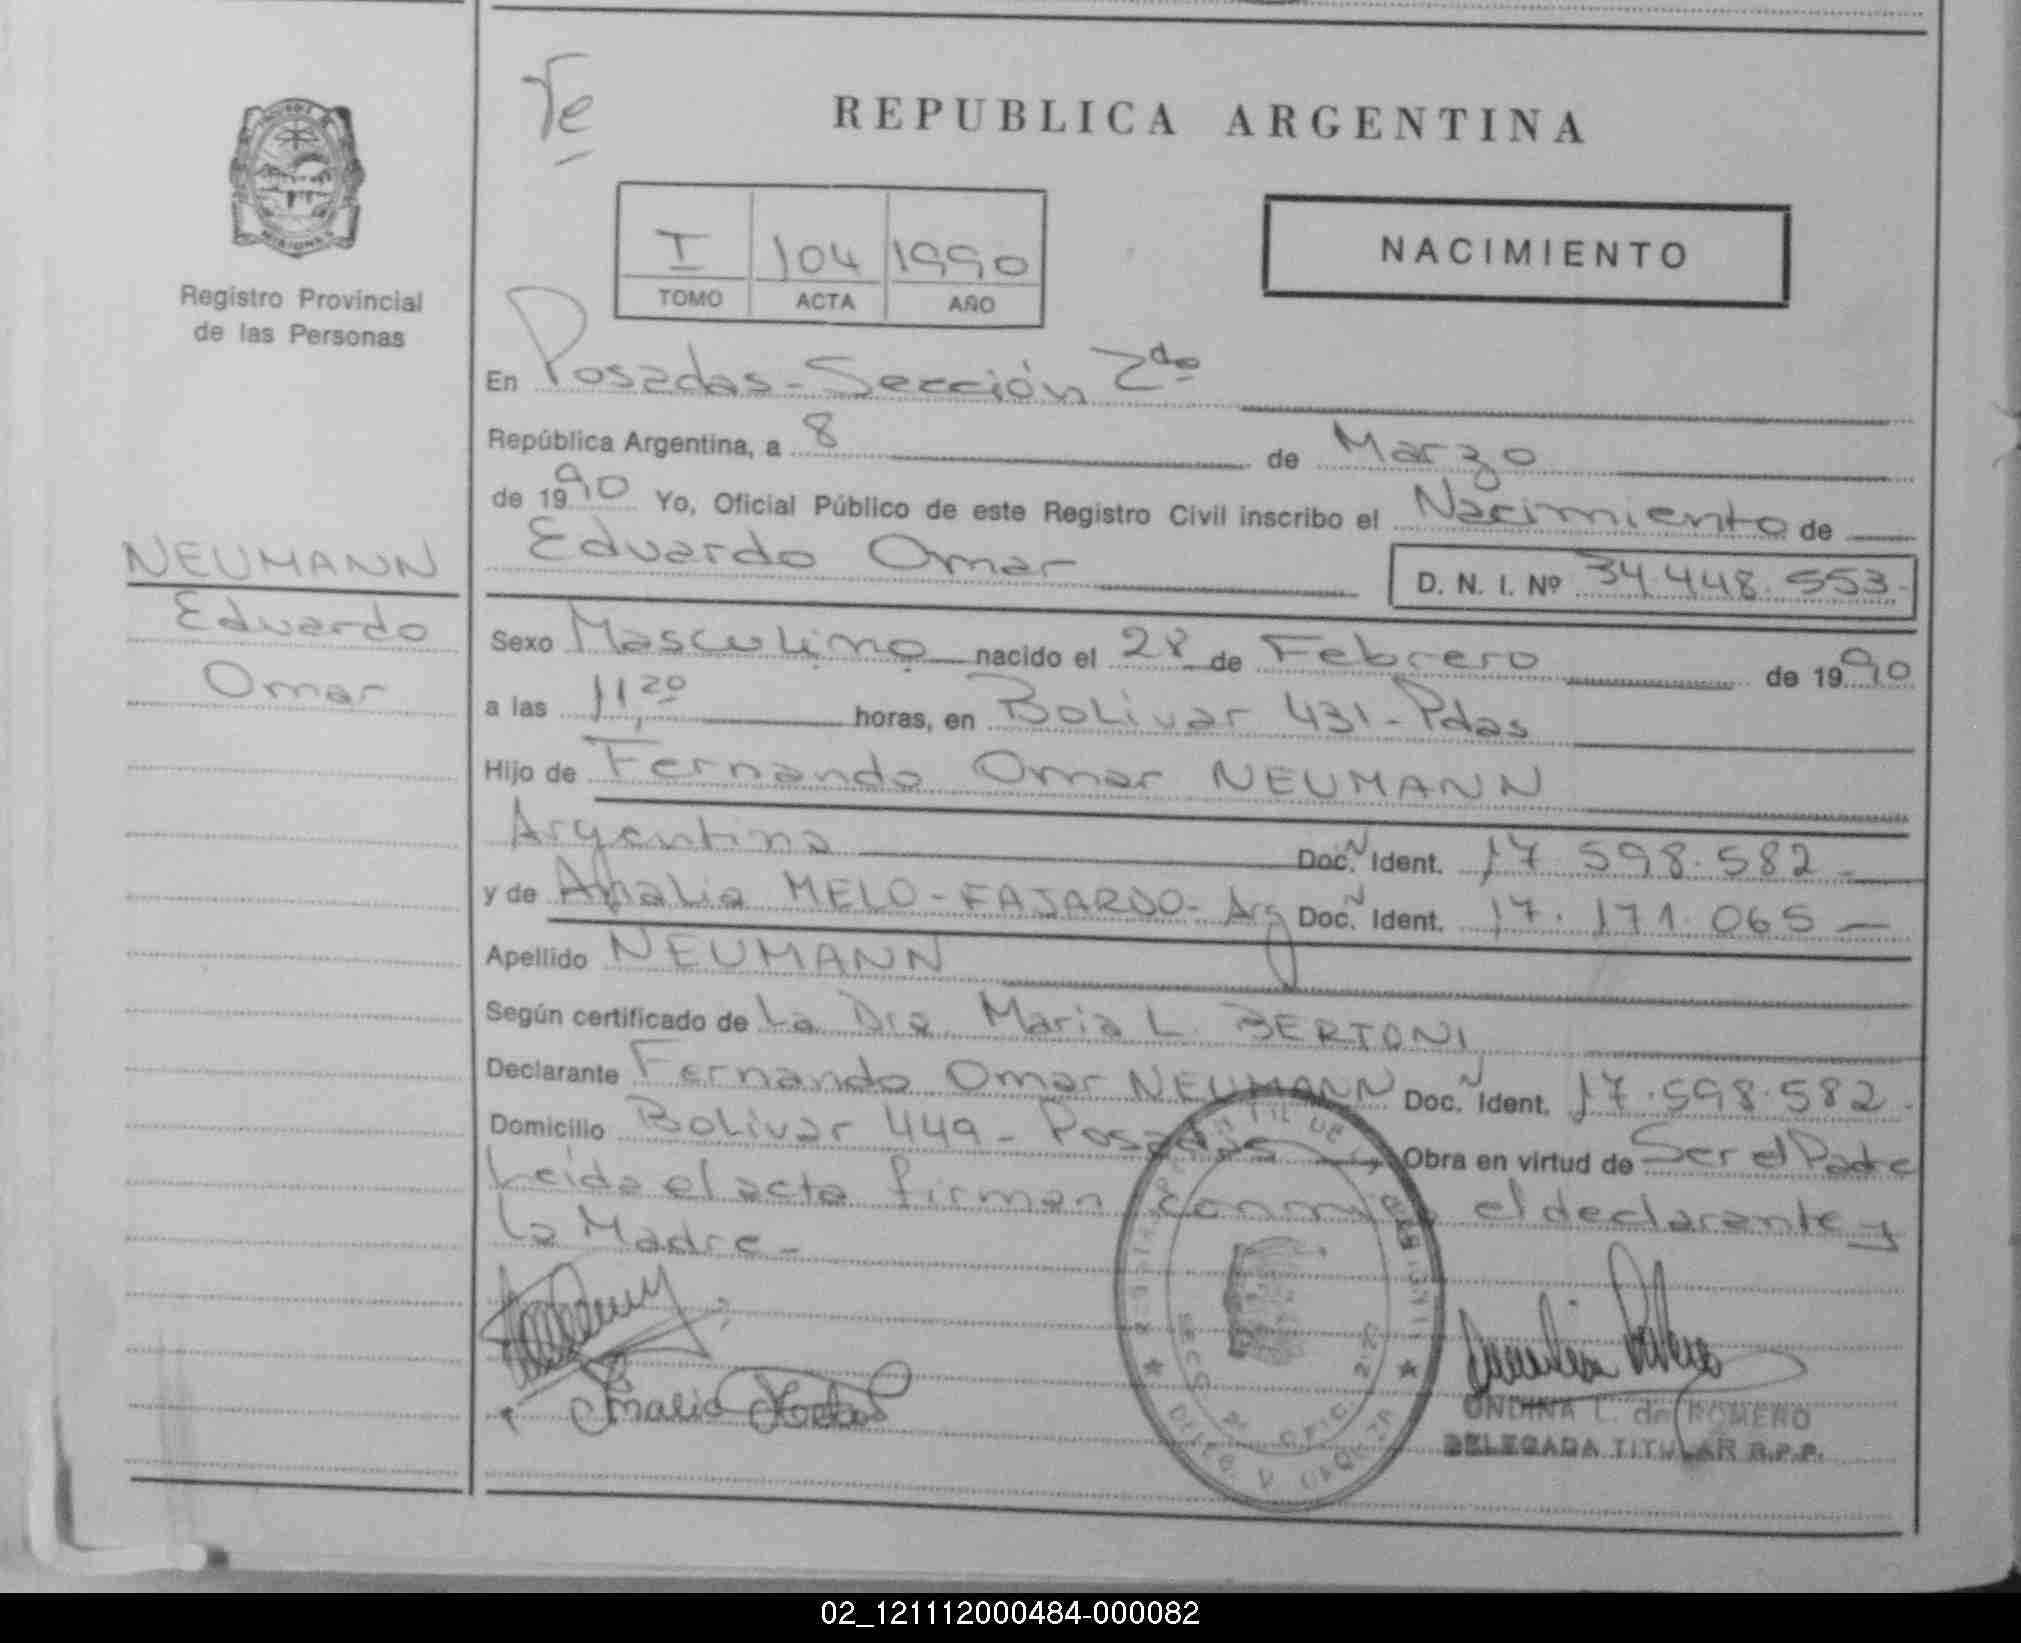 Te
REPUBLICA ARGENTINA
MISIONES
Registro Provincial
de las Personas
I 104 1990
TOMO ACTA AÑO
NACIMIENTO
En Posadas - Sección 2da
República Argentina, a 8 de Marzo
de 1990 Yo, Oficial Público de este Registro Civil inscribo el Nacimiento de
Eduardo Omar D. N. I. Nº 34.448.553-
NEUMANN
Eduardo
Omar
Sexo Masculino nacido el 28 de Febrero de 1990
a las 11,20 horas, en Bolivar 431 - Pdas
Hijo de Fernando Omar NEUMANN
Argentina Doc. Ident. 17.598.582 -
y de Amalia MELO - FAJARDO - Arg Doc. Ident. 17.171.065 -
Apellido NEUMANN
Según certificado de La Dra. Maria L. BERTONI
Declarante Fernando Omar NEUMANN Doc. Ident. 17.598.582 -
Domicilio Bolivar 449 - Posadas Obra en virtud de Ser el Padre
Leida el acta firman conmigo el declarante y
la Madre -
ONDINA L. de ROMERO
DELEGADA TITULAR R.P.P.
02_121112000484-000082